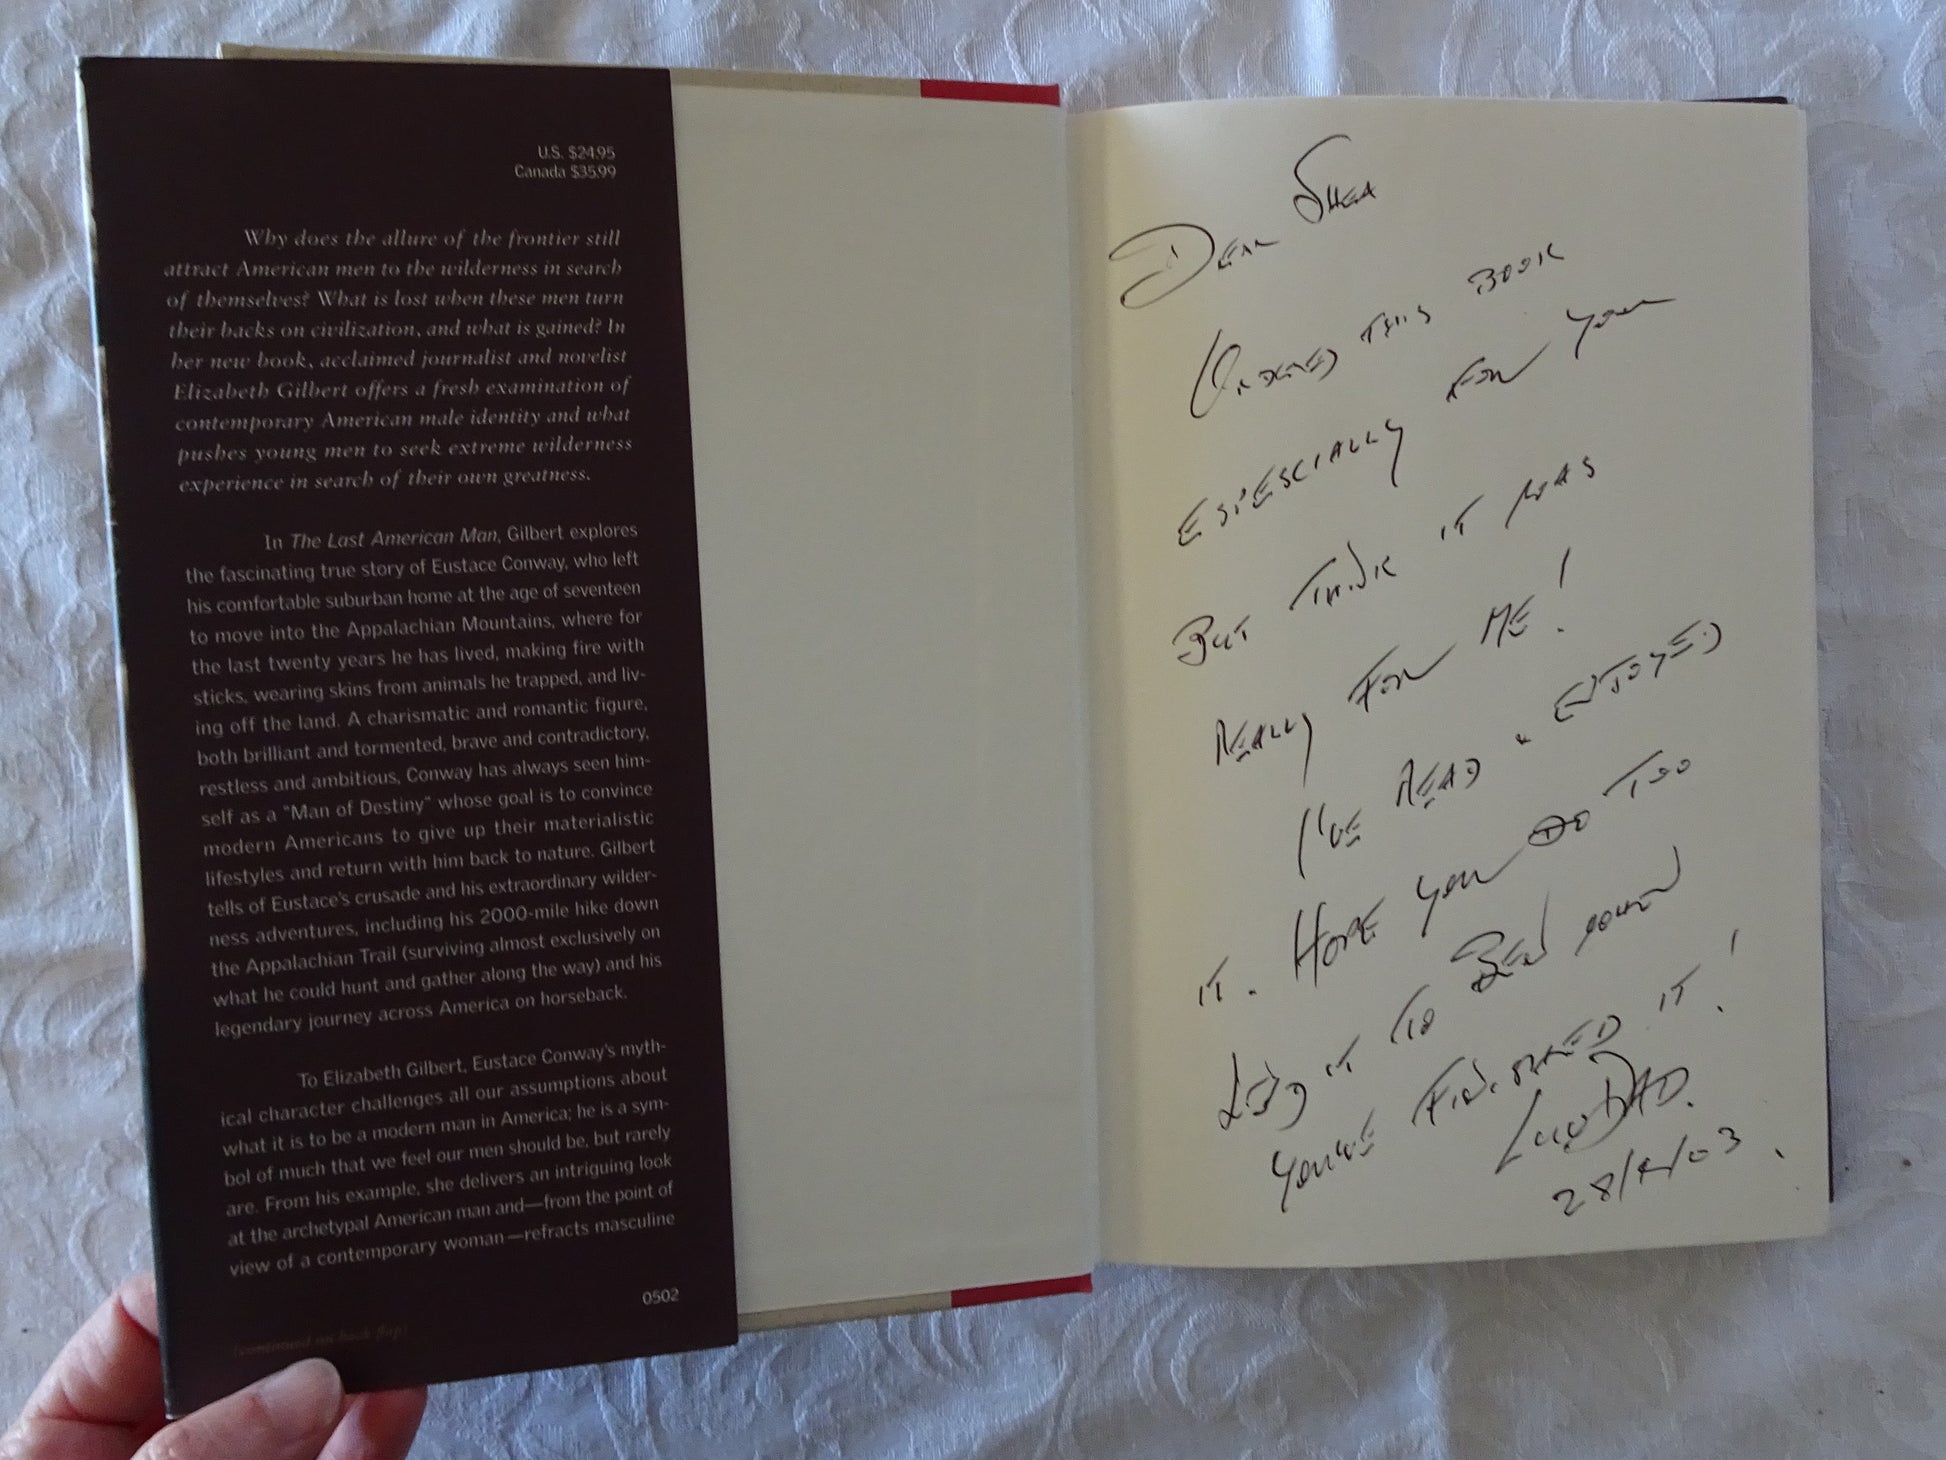 U.S. $24.95
Canada $35.99
Why does the allure of the frontier still
attract American men to the wilderness in search
of themselves? What is lost when these men turn
their backs on civilization, and what is gained? In
her new book, acclaimed journalist and novelist
Elizabeth Gilbert offers a fresh examination of
contemporary American male identity and what
pushes young men to seek extreme wilderness
experience in search of their own greatness.
In The Last American Man, Gilbert explores
the fascinating true story of Eustace Conway, who left
his comfortable suburban home at the age of seventeen
to move into the Appalachian Mountains, where for
the last twenty years he has lived, making fire with
sticks, wearing skins from animals he trapped, and liv-
ing off the land. A charismatic and romantic figure,
both brilliant and tormented, brave and contradictory,
restless and ambitious, Conway has always seen him-
self as a "Man of Destiny" whose goal is to convince
modern Americans to give up their materialistic
lifestyles and return with him back to nature. Gilbert
tells of Eustace's crusade and his extraordinary wilder-
ness adventures, including his 2000-mile hike down
the Appalachian Trail (surviving almost exclusively on
what he could hunt and gather along the way) and his
legendary journey across America on horseback.
To Elizabeth Gilbert, Eustace Conway's myth-
ical character challenges all our assumptions about
what it is to be a modern man in America; he is a sym-
bol of much that we feel our men should be, but rarely
are. From his example, she delivers an intriguing look
at the archetypal American man and—from the point of
view of a contemporary woman—refracts masculine
0502
(continued on back flap)
DEAR SHEA
ORDERED THIS BOOK
ESPESCIALLY FOR YOU
BUT THINK IT WAS
REALLY FOR ME!
I'VE READ & ENJOYED
IT. HOPE YOU DO TOO
LEND IT TO BEN WHEN
YOU'VE FINISHED IT!
LUV DAD.
28/4/03.